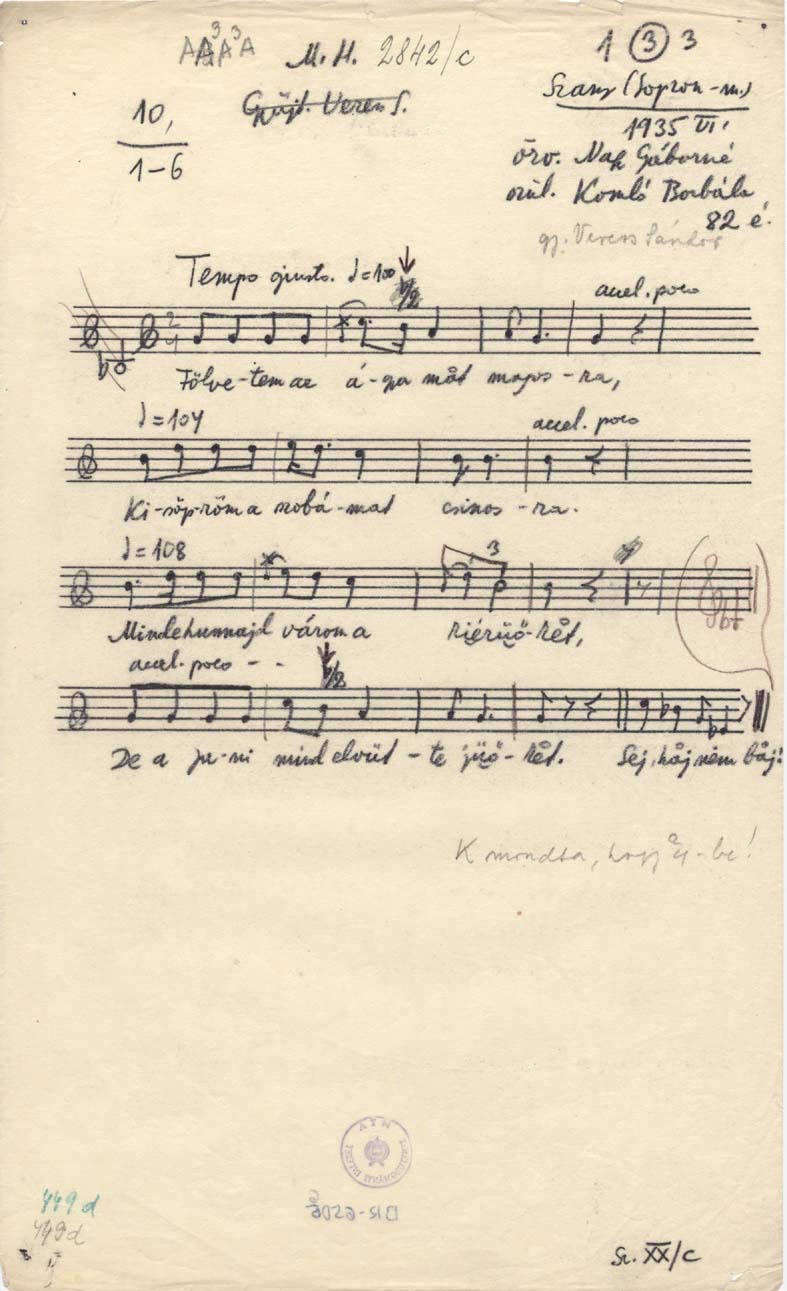 AA³A³A M. H. 2842/c 1 ③ 3
Gyüjt. Veress S.
Szany (Sopron-m.)
10,
1-6
1935 VI.
özv. Nagy Gáborné
szül. Komló Borbála
82 é.
gy. Veress Sándor
Tempo giusto. ♩=100 b/2 accel. poco
Fölve-temaz á-gamåt magos-ra,
♩=104 accel. poco
Ki-söpröm a szobá-mat csinos-ra.
♩=108 3
Mindehunnajd várom a
accel. poco - - b/2
De a mind elvüt-te Sej, håj nem båj!
K mondta, hogy
ATM
449 d
449 d
Sz. XX/c